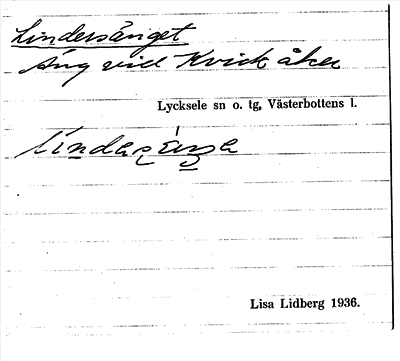 Lindersänget
Äng vid Kvickåker
Lycksele sn o. tg, Västerbottens l.
Lisa Lidberg 1936.